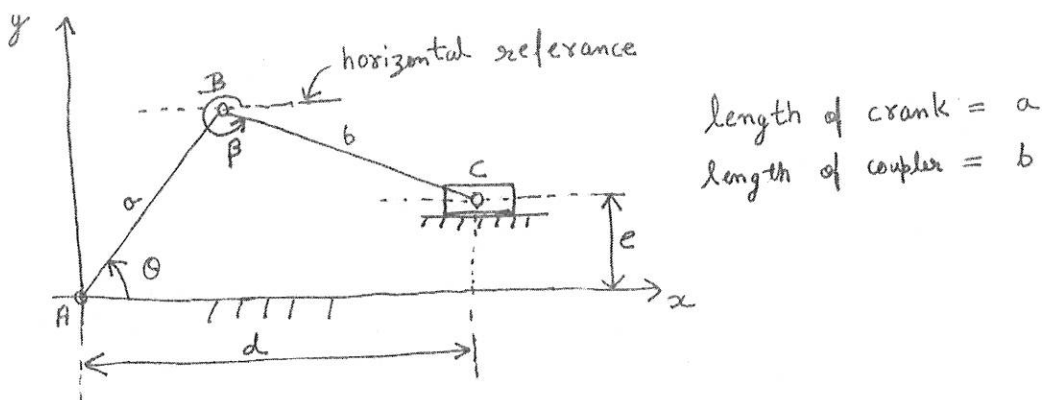 y
horizontal referance
B
β
b
a
C
length of crank = a
length of coupler = b
θ
e
A
x
d